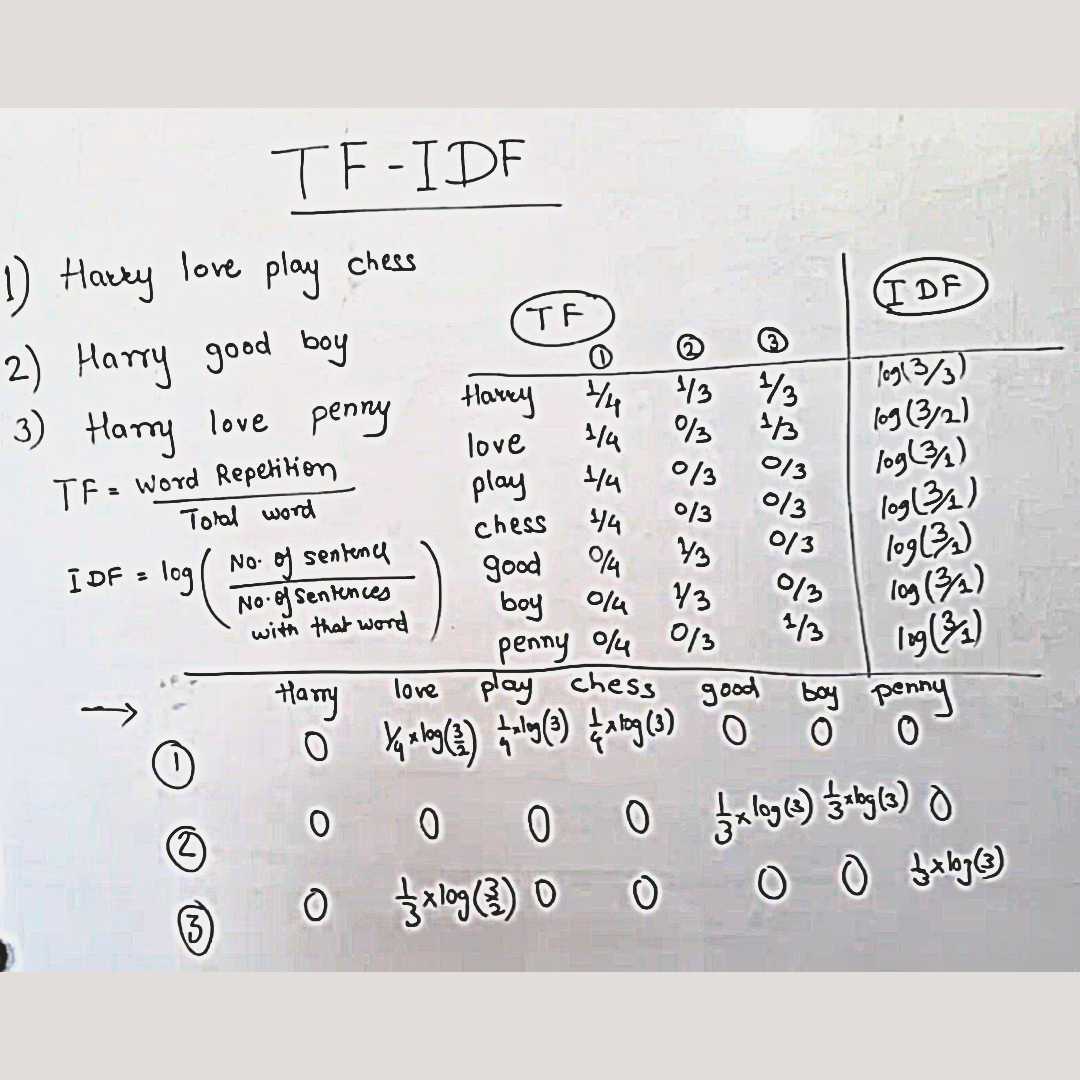 TF-IDF
1) Harry love play chess
2) Harry good boy
3) Harry love penny
TF = Word Repetition / Total word
IDF = log( No. of sentence / No. of sentences with that word )
TF IDF
① ② ③
Harry 1/4 1/3 1/3 log(3/3)
love 1/4 0/3 1/3 log(3/2)
play 1/4 0/3 0/3 log(3/1)
chess 1/4 0/3 0/3 log(3/1)
good 0/4 1/3 0/3 log(3/1)
boy 0/4 1/3 0/3 log(3/1)
penny 0/4 0/3 1/3 log(3/1)
→ Harry love play chess good boy penny
① 0 1/4 × log(3/2) 1/4 × log(3) 1/4 × log(3) 0 0 0
② 0 0 0 0 1/3 × log(3) 1/3 × log(3) 0
③ 0 1/3 × log(3/2) 0 0 0 0 1/3 × log(3)